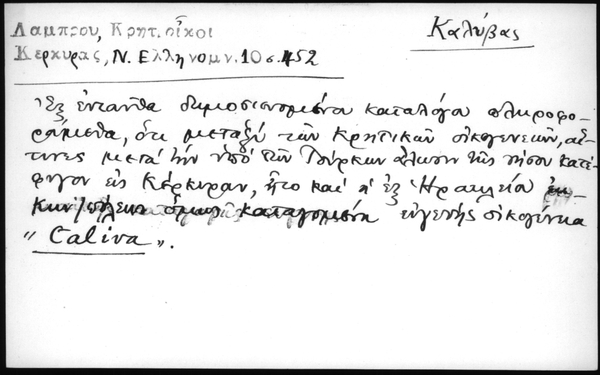 Λαμπρου, Κρητ. οἶκοι
Κερκυρας, Ν. Ελληνομν. 10 σ. 452
Καλύβας
Ἐξ ἐνταῦθα δημοσιευομένου καταλόγου πληροφο-
ρούμεθα, ὅτι μεταξὺ τῶν Κρητικῶν οἰκογενειῶν, αἵ-
τινες μετὰ τὴν ὑπὸ τῶν Τούρκων ἅλωσιν τῆς νήσου κατέ-
φυγον εἰς Κέρκυραν, ἦτο καὶ ἡ ἐξ Ἡρακλείου
καταγομένη εὐγενὴς οἰκογένεια
"Caliva".